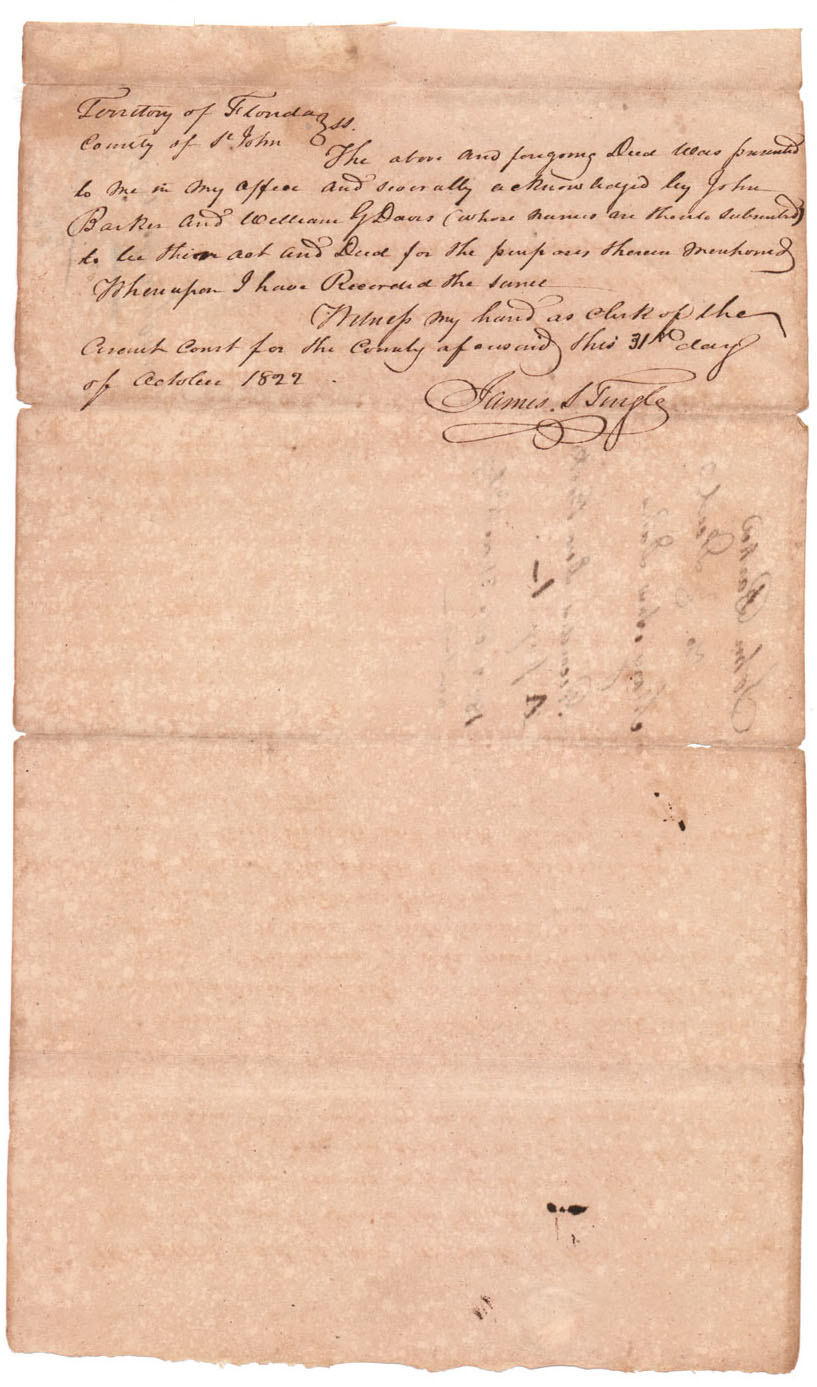 Territory of Florida } ss.
County of St John
The above and foregoing Deed was presented
to me in my office and severally acknowledged by John
Barker and William G Davis (whose names are thereto subscribed)
to be their act and Deed for the purposes therein mentioned
Whereupon I have Recorded the same
Witness my hand as Clerk of the
Circuit Court for the County aforesaid this 31st day
of October 1822
James S Tingle
John Barker